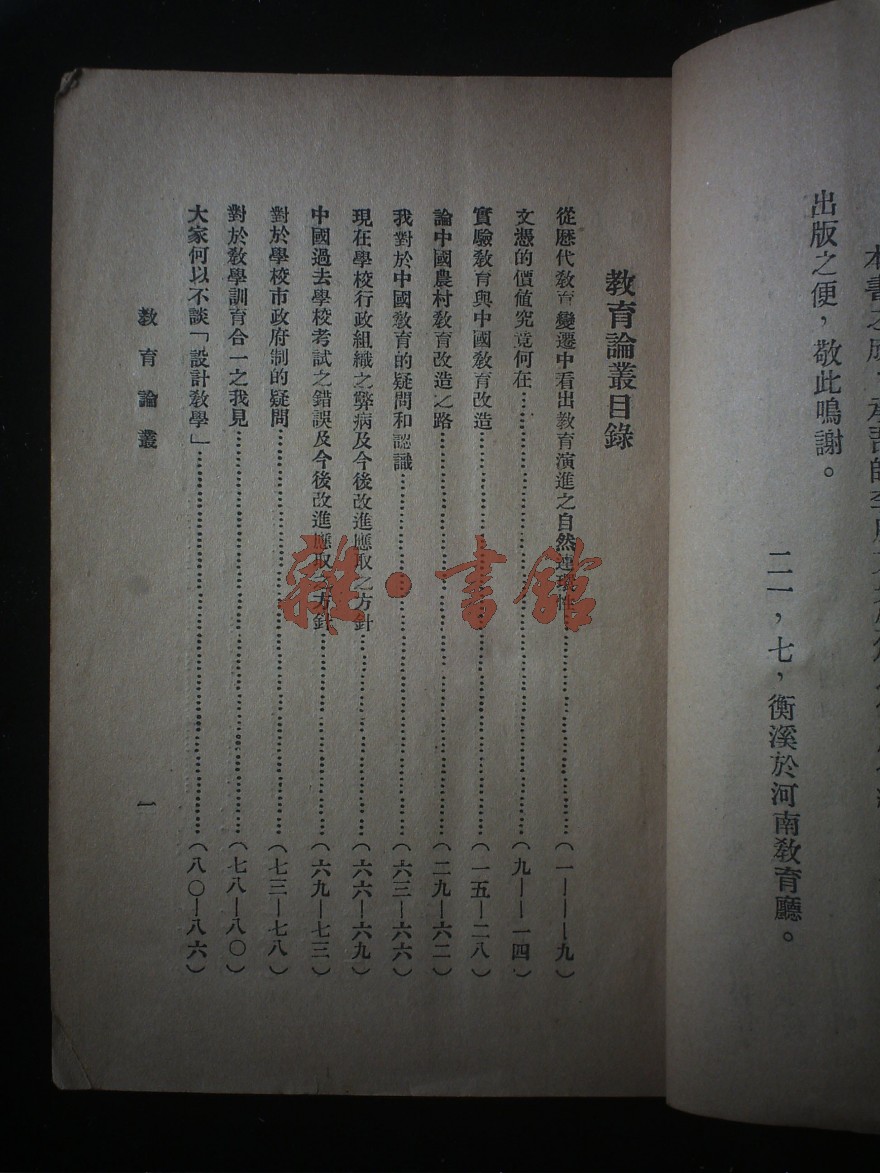 出版之便，敬此鳴謝。
二一，七，衡溪於河南教育廳。
教育論叢目錄
從歷代教育變遷中看出教育演進之自然連環性…………（一——九）
文憑的價值究竟何在…………（九——一四）
實驗教育與中國教育改造…………（一五—二八）
論中國農村教育改造之路…………（二九—六二）
我對於中國教育的疑問和認識…………（六三—六六）
現在學校行政組織之弊病及今後改進應取之方針…………（六六—六九）
中國過去學校考試之錯誤及今後改進應取之方針…………（六九—七三）
對於學校市政府制的疑問…………（七三—七八）
對於教學訓育合一之我見…………（七八—八〇）
大家何以不談「設計教學」…………（八〇—八六）
教育論叢
一
雜·書館